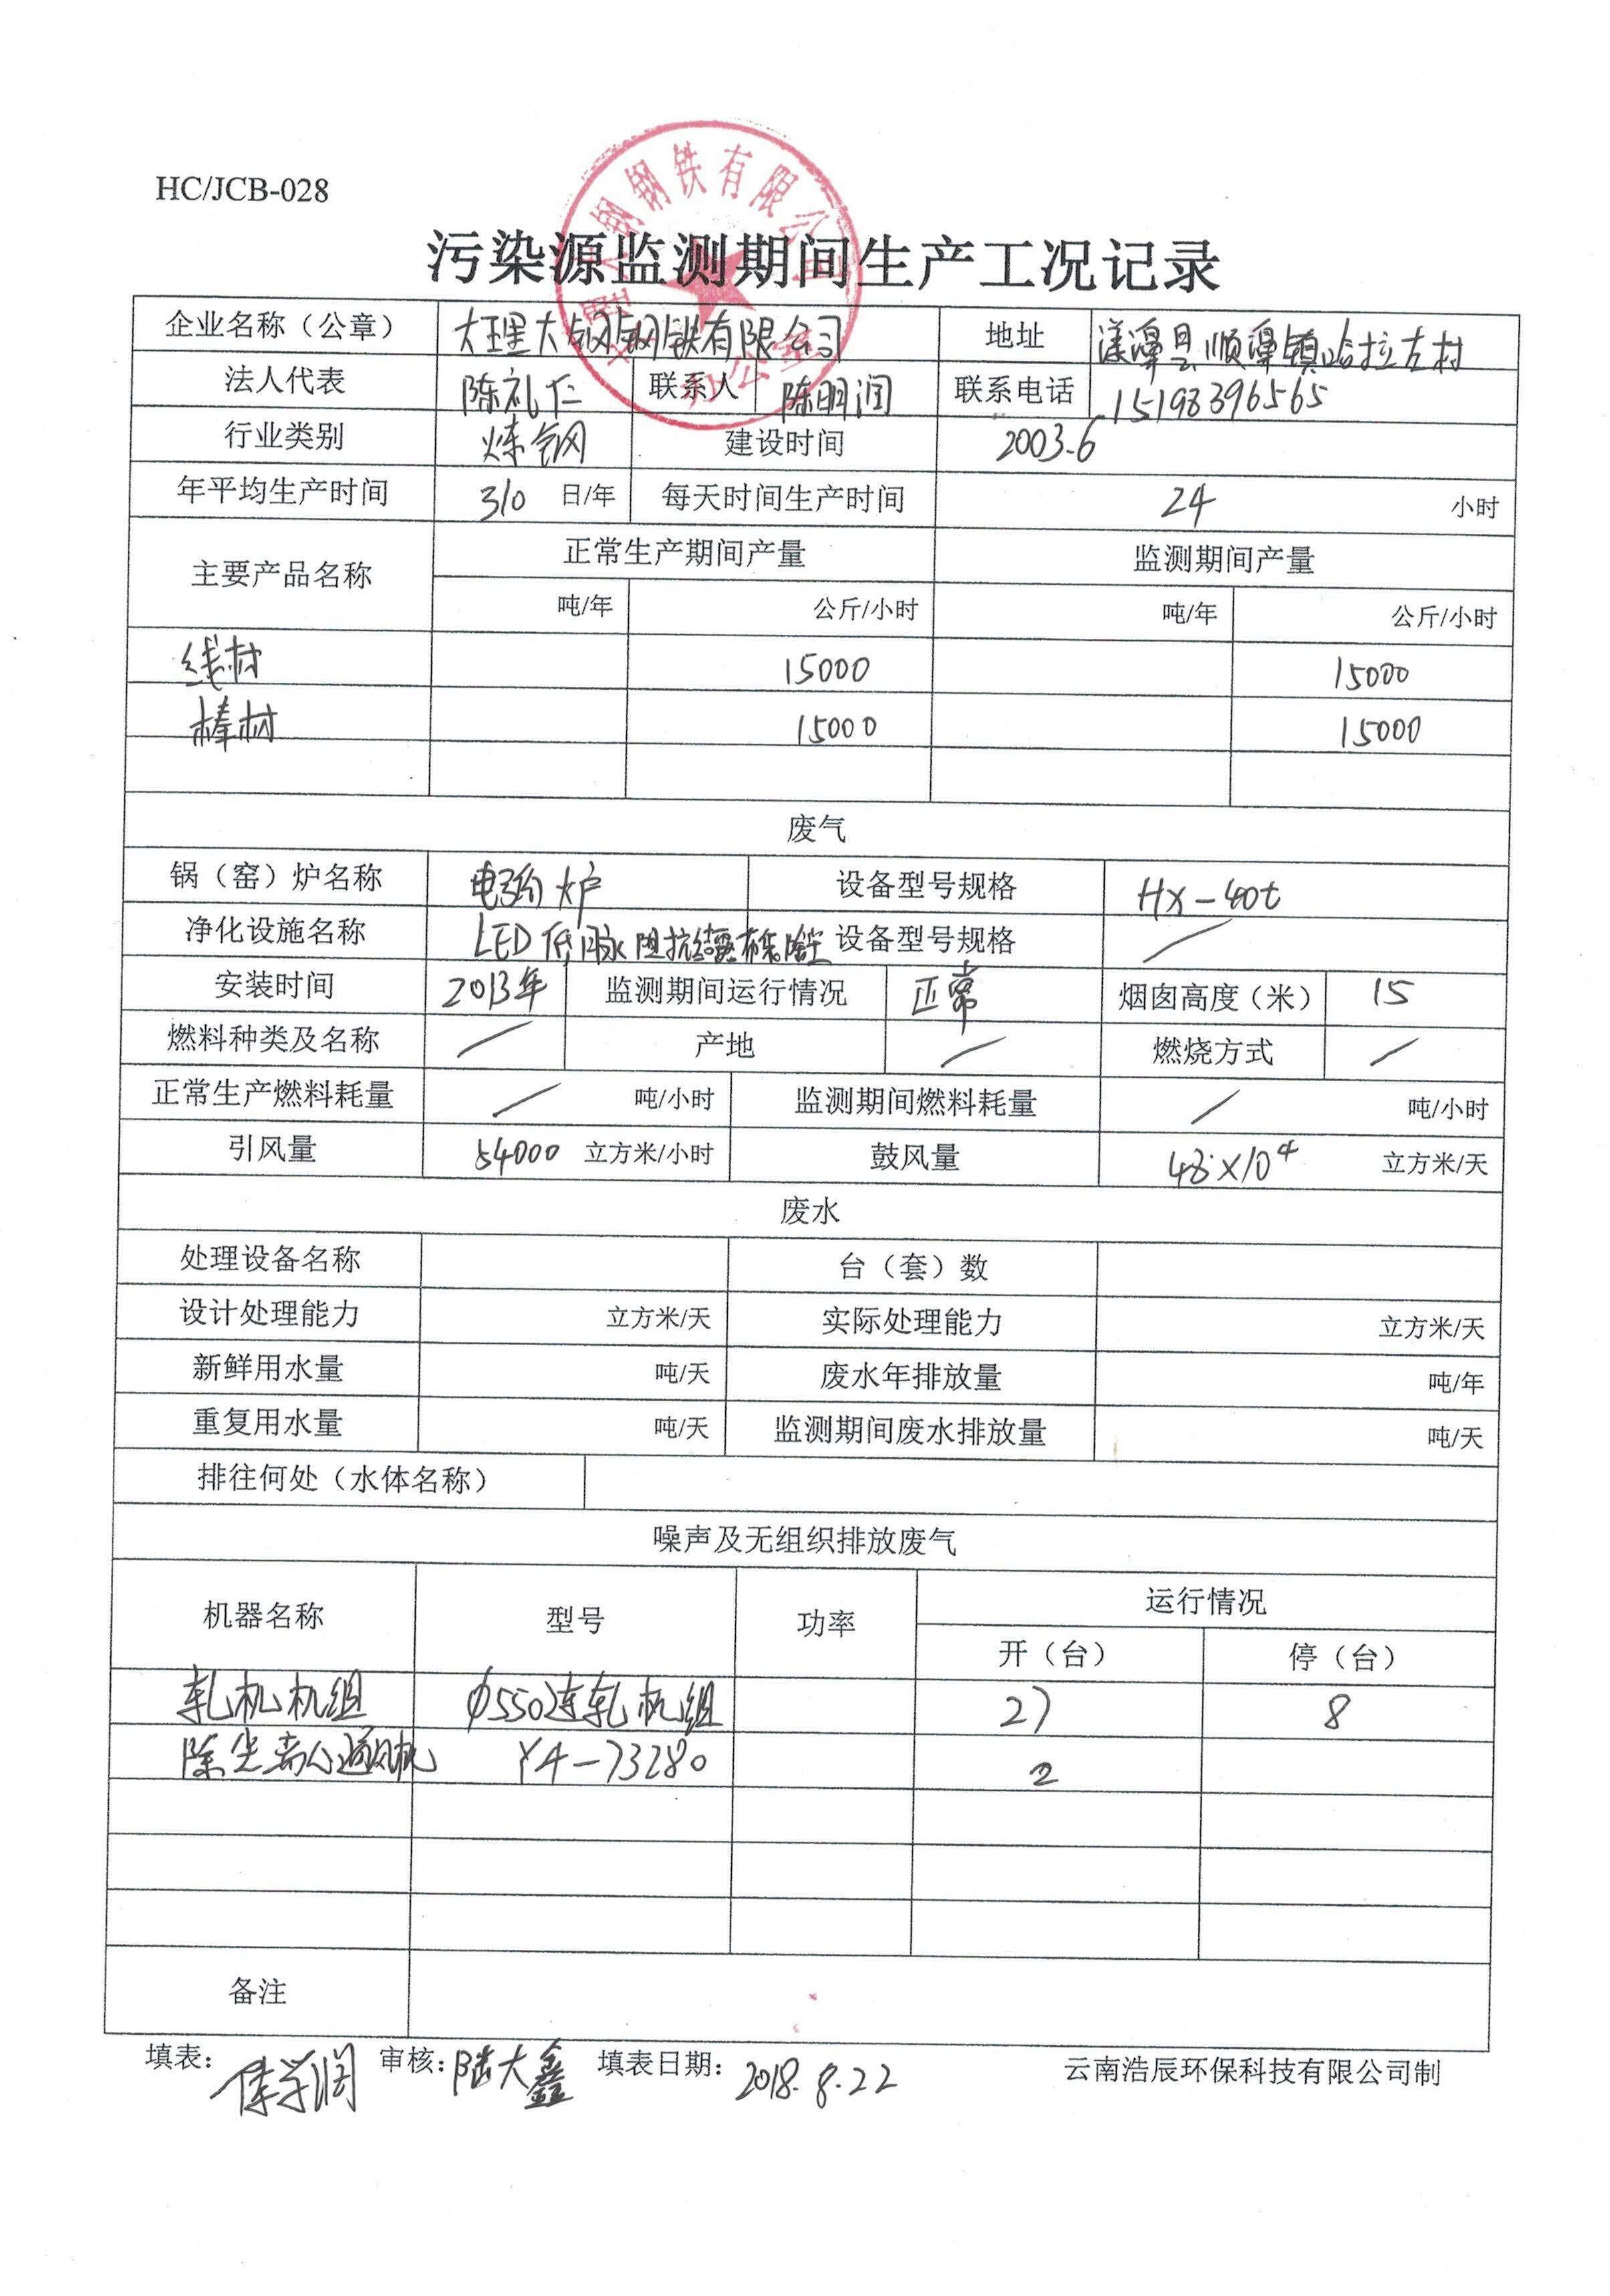 HC/JCB-028
钢钢铁有限公司
办公室
污染源监测期间生产工况记录
企业名称（公章） 大理大钢钢铁有限公司 地址 漾濞县顺濞镇哈拉左村
法人代表 陈礼仁 联系人 陈明润 联系电话 15198396565
行业类别 炼钢 建设时间 2003.6
年平均生产时间 310 日/年 每天时间生产时间 24 小时
主要产品名称 正常生产期间产量 监测期间产量
吨/年 公斤/小时 吨/年 公斤/小时
线材 15000 15000
棒材 15000 15000
废气
锅（窑）炉名称 电弧炉 设备型号规格 HX-40t
净化设施名称 LED低压脉 阻抗 除尘 设备型号规格 /
安装时间 2013年 监测期间运行情况 正常 烟囱高度（米） 15
燃料种类及名称 / 产地 / 燃烧方式 /
正常生产燃料耗量 / 吨/小时 监测期间燃料耗量 / 吨/小时
引风量 54000 立方米/小时 鼓风量 48×10⁴ 立方米/天
废水
处理设备名称 台（套）数
设计处理能力 立方米/天 实际处理能力 立方米/天
新鲜用水量 吨/天 废水年排放量 吨/年
重复用水量 吨/天 监测期间废水排放量 吨/天
排往何处（水体名称）
噪声及无组织排放废气
机器名称 型号 功率 运行情况
开（台） 停（台）
轧机机组 φ550连轧机组 27 8
除尘离心通风机 Y4-73280 2
备注
填表： 审核：陆大鑫 填表日期：2018.8.22 云南浩辰环保科技有限公司制